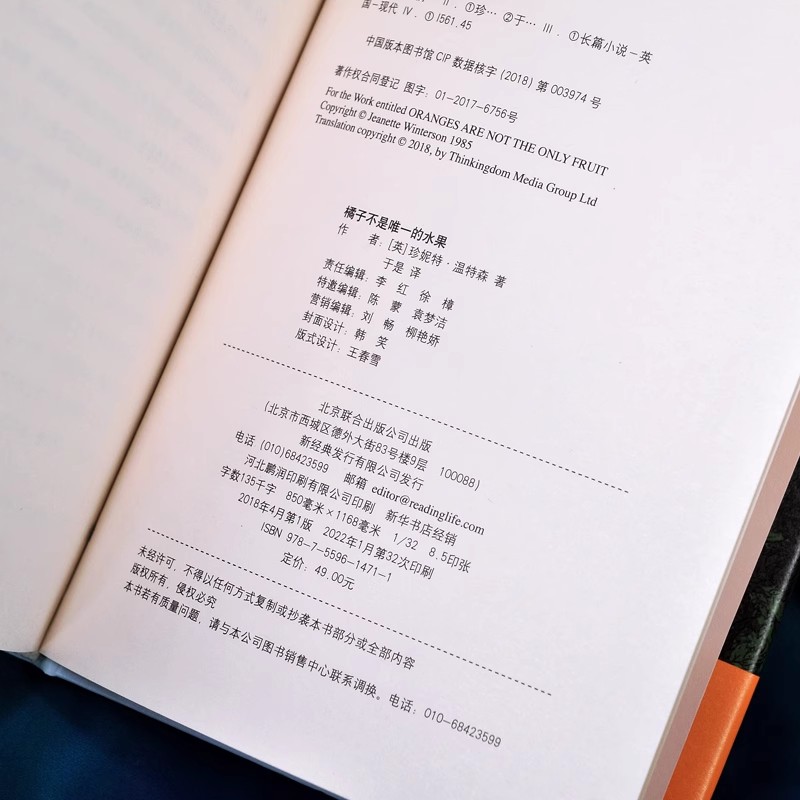 Ⅱ. ①珍… ②于… Ⅲ. ①长篇小说－英
国－现代 Ⅳ. ①I561.45
中国版本图书馆CIP数据核字（2018）第003974号
著作权合同登记 图字：01-2017-6756号
For the Work entitled ORANGES ARE NOT THE ONLY FRUIT
Copyright © Jeanette Winterson 1985
Translation copyright © 2018, by Thinkingdom Media Group Ltd
橘子不是唯一的水果
作 者：[英]珍妮特·温特森 著
于是 译
责任编辑：李 红 徐 樟
特邀编辑：陈 蒙 袁梦洁
营销编辑：刘 畅 柳艳娇
封面设计：韩 笑
版式设计：王春雪
北京联合出版公司出版
（北京市西城区德外大街83号楼9层 100088）
新经典发行有限公司发行
电话（010）68423599 邮箱 editor@readinglife.com
河北鹏润印刷有限公司印刷 新华书店经销
字数135千字 850毫米×1168毫米 1/32 8.5印张
2018年4月第1版 2022年1月第32次印刷
ISBN 978-7-5596-1471-1
定价：49.00元
未经许可，不得以任何方式复制或抄袭本书部分或全部内容
版权所有，侵权必究
本书若有质量问题，请与本公司图书销售中心联系调换。电话：010-68423599